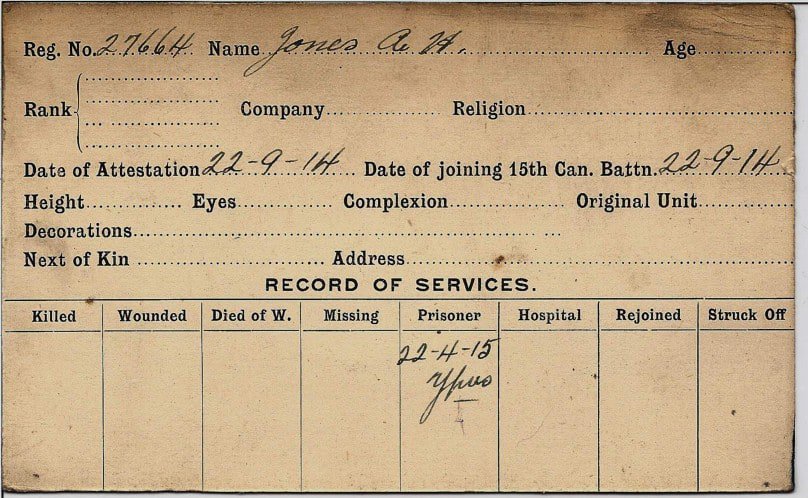 Reg. No. 27664 Name Jones A. H. Age
Rank Company Religion
Date of Attestation 22-9-14 Date of joining 15th Can. Battn. 22-9-14
Height Eyes Complexion Original Unit
Decorations
Next of Kin Address
RECORD OF SERVICES.
Killed Wounded Died of W. Missing Prisoner Hospital Rejoined Struck Off
22-4-15
Ypres